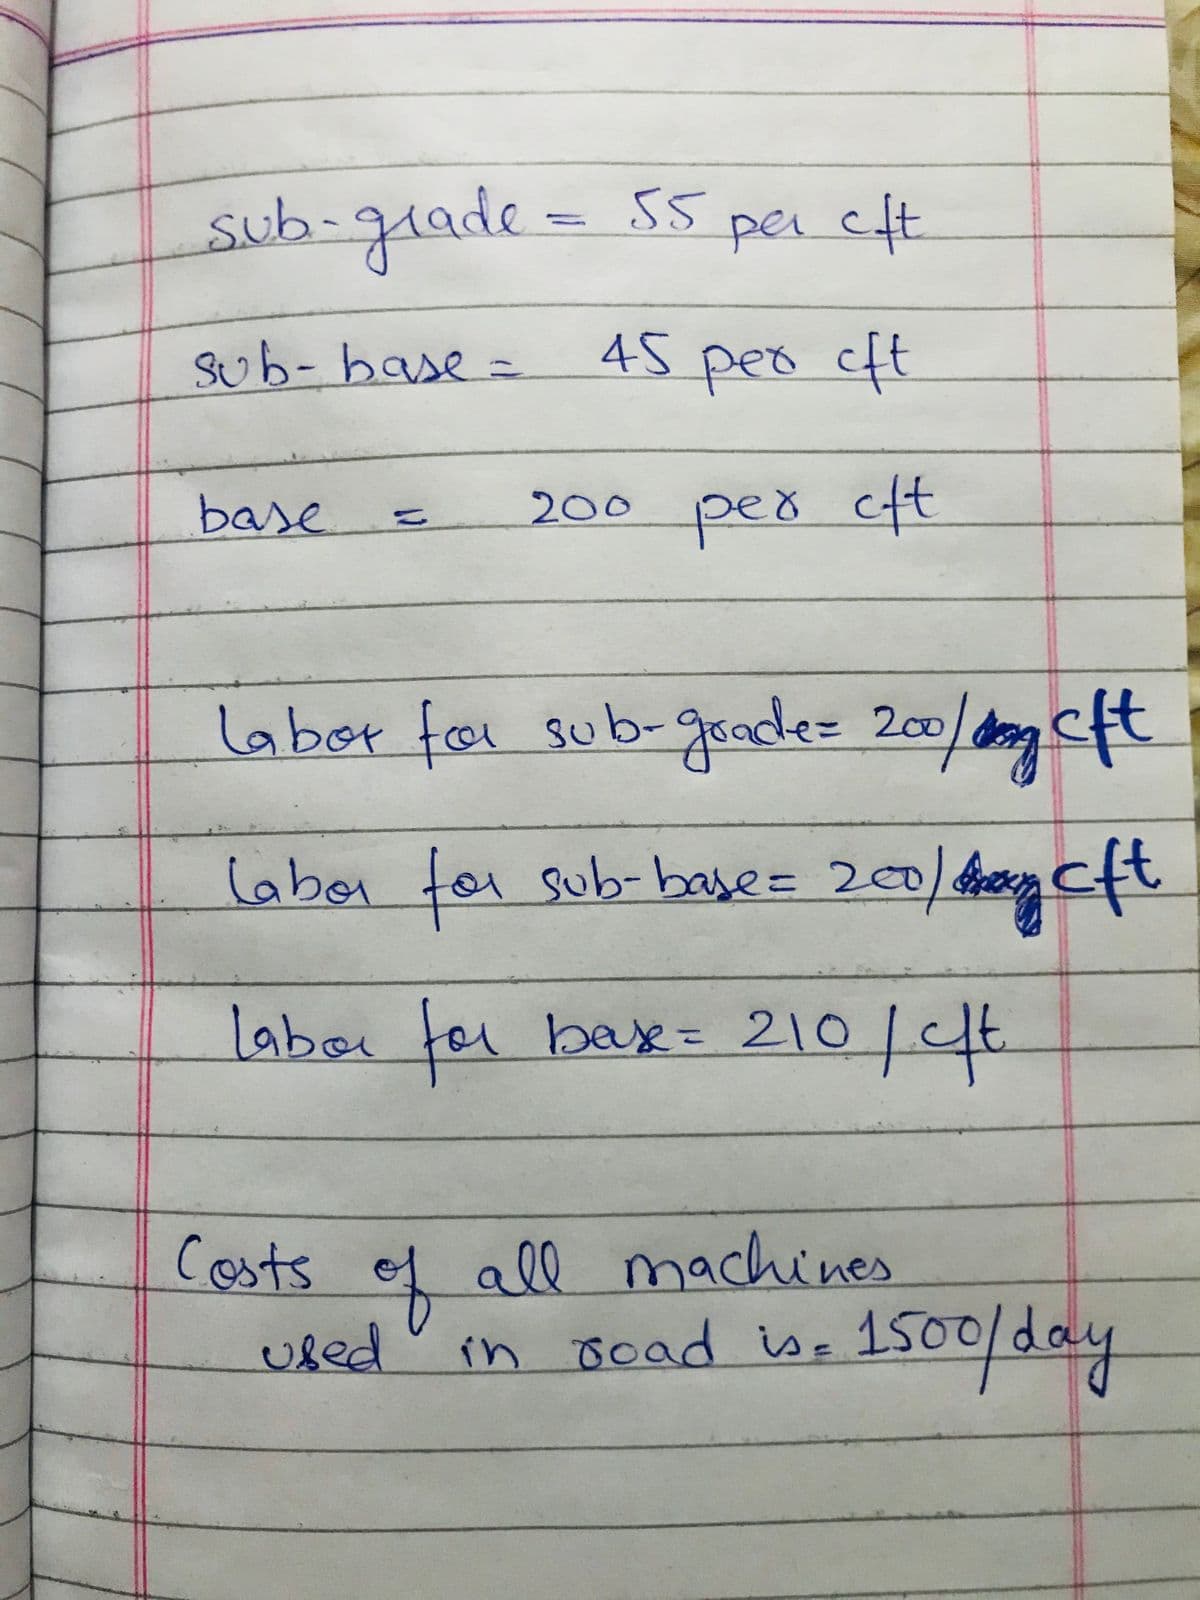 sub-grade = 55 per cft
sub-base = 45 per cft
base = 200 per cft
labor for sub-grade= 200/ cft
labor for sub-base= 200/ cft
labor for base= 210/cft
Costs of all machines
used in road is= 1500/day